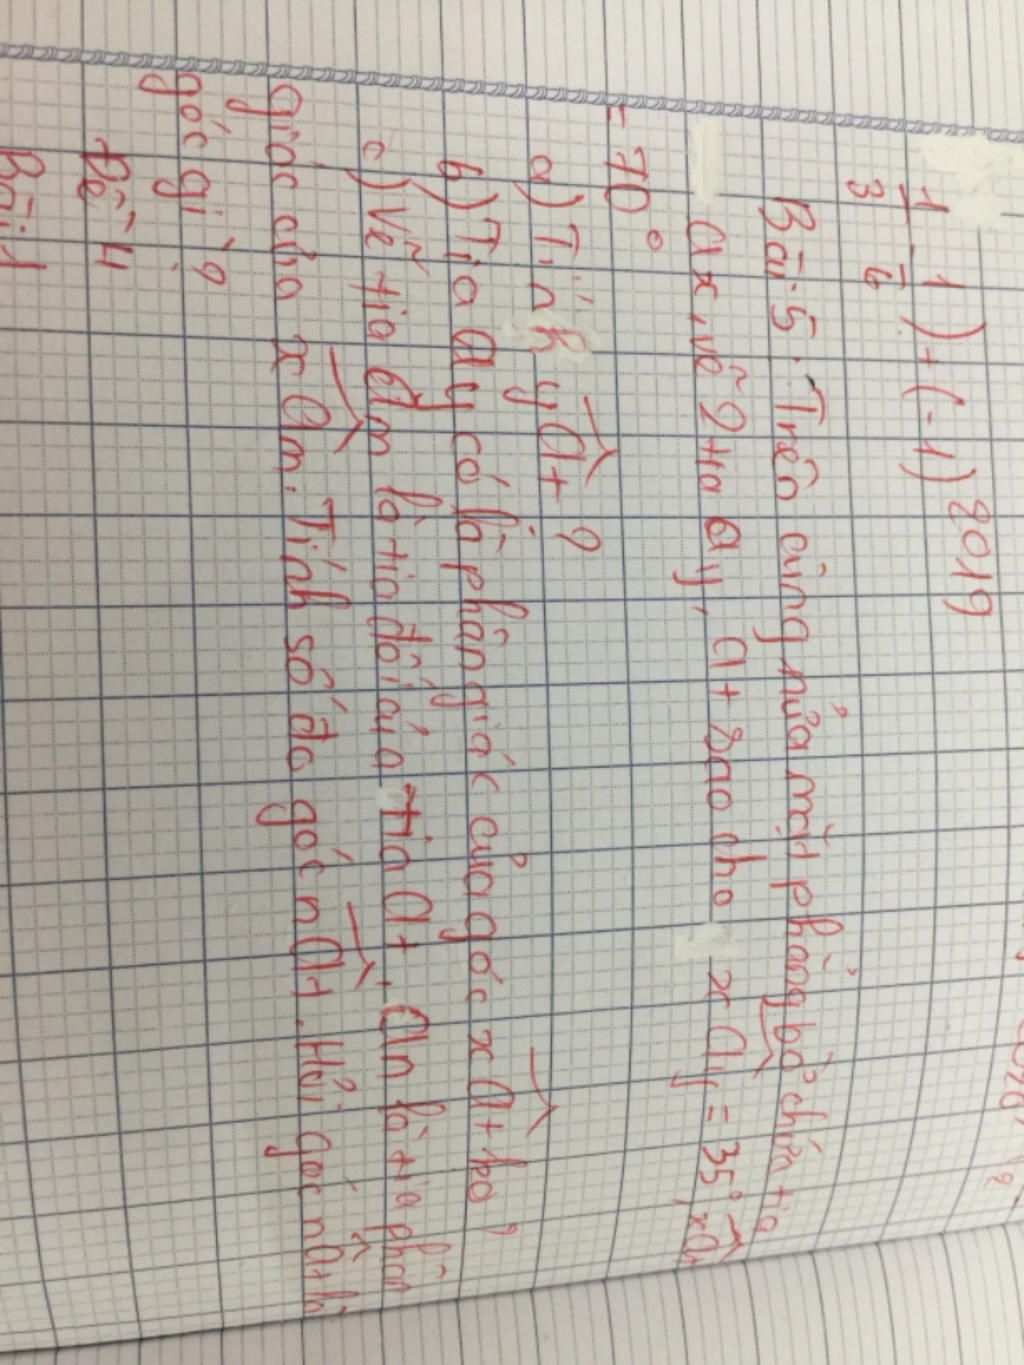 1/3 - 1/6 ) + (-1) 2019
Bài 5: Trên cùng nửa mặt phẳng bờ chứa tia
ax, vẽ 2 tia ay, at sao cho xay = 35°, xat
= 70°
a) Tính yat ?
b) Tia ay có là phân giác của góc xat ko ?
c) Vẽ tia am là tia đối của tia at, an là tia phân
giác của xam. Tính số đo góc nat. Hỏi góc nat là
góc gì ?
Đề 4
Bài 1